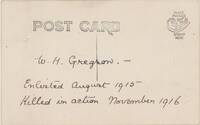 POST CARD
W. H. Gregson. -
Enlisted August 1915
Killed in action November 1916